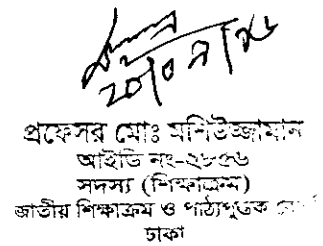 প্রফেসর মোঃ মশিউজ্জামান
আইডি নং-২৮৫৬
সদস্য (শিক্ষাক্রম)
জাতীয় শিক্ষাক্রম ও পাঠ্যপুস্তক
ঢাকা